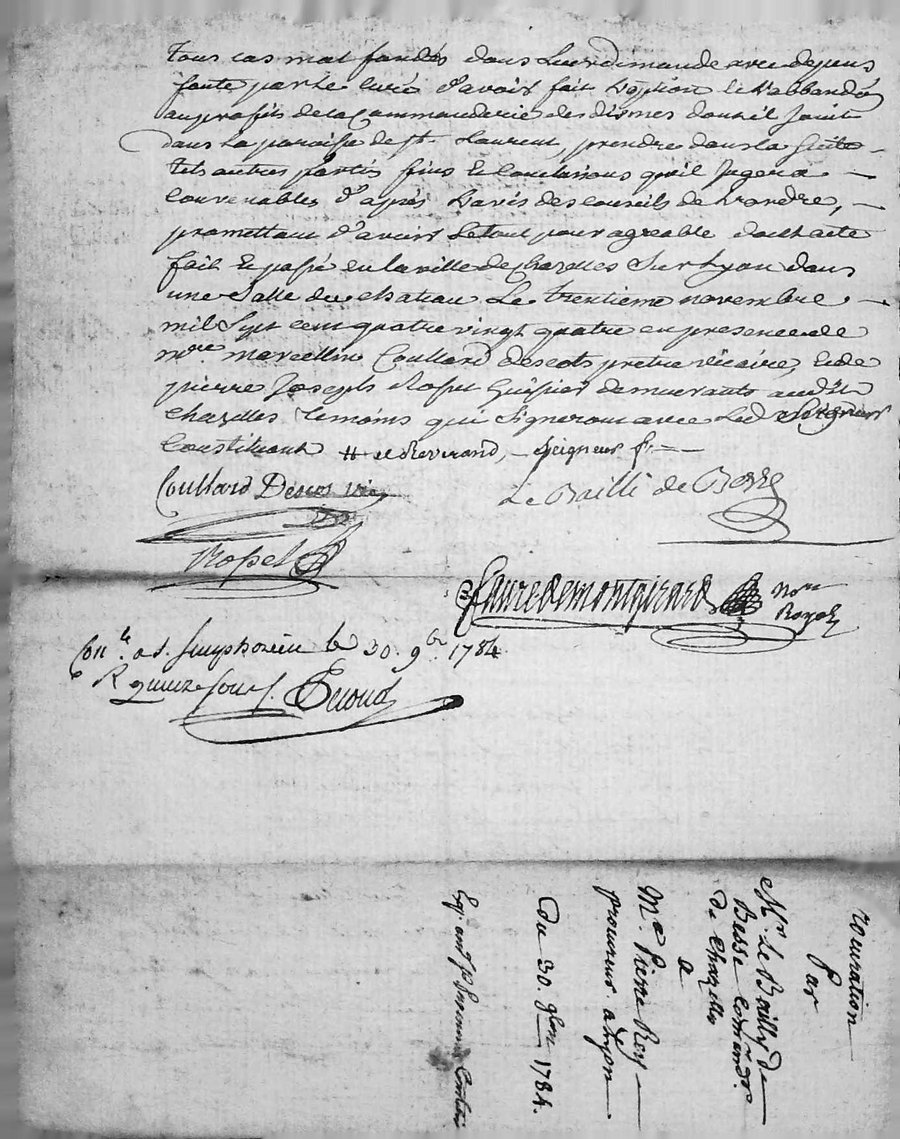 tous cas mal fondés dans leur demande avec depens
faute par le curé d'avoir fait l'option et l'abbandon
au profit de la Commanderie des dixmes dont il jouit
dans la paroisse de St. Laurent, prendre dans la suite
tels autres partis fins et Conclusions qu'il jugera
Convenables d'après l'avis des conseils de
promettant d'avoir le tout pour agreable dont acte
fait et passé en la ville de Chazelles sur Lyon dans
une Salle du chateau Le trentieme novembre
mil Sept cent quatre vingt quatre en presence de
mre marcellin Coullard descots pretre vicaire, et de
pierre Joseph Rosset huissier demeurants aud.
Chazelles temoins qui signeront avec Led Seigneur
Constituant # et Reverend, Seigneur f.
Coullard Descos vic
Le Bailli de Besse
Rosset
faure de montgirard nore
Royal
Conle. a S. Simphorien le 30. 9bre 1784.
R quinze sous
procuration
Par
Mr. Le Bailly de
Besse Command.
de Chazelles
a
Me Pierre Rey
procureur a Lyon
Du 30 9bre 1784.